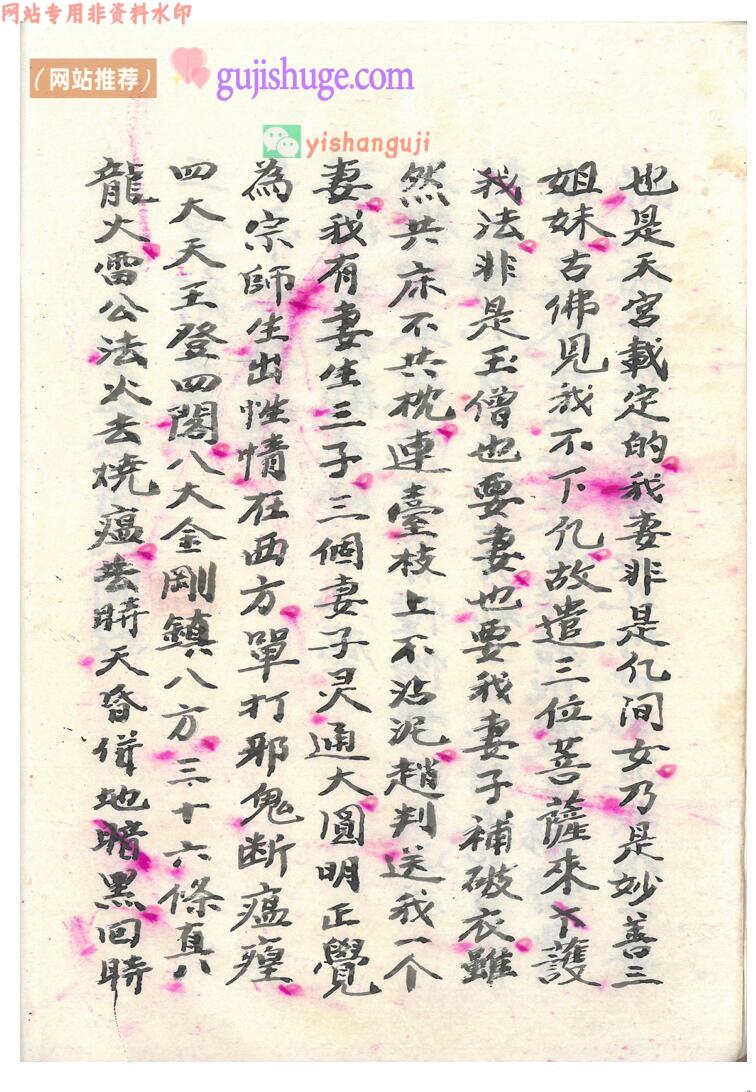 网站专用非资料水印
（网站推荐）
gujishuge.com
yishanguji
也是天宮載定的我妻非是亿间女乃是妙善三
姐妹古佛見我不下亿故遣三位菩薩來下護
我法非是玉僧也要妻也要我妻子補破衣雖
然共床不共枕連臺枝上不沾泥趙判送我一个
妻我有妻生三子三個妻子灵通大圓明正覺
為宗師生出性情在西方單打邪鬼断瘟瘽
四大天王登四閣八大金剛鎮八方三十六條真
龍火雷公法火去燒瘟去時天昏併地暗黑回時